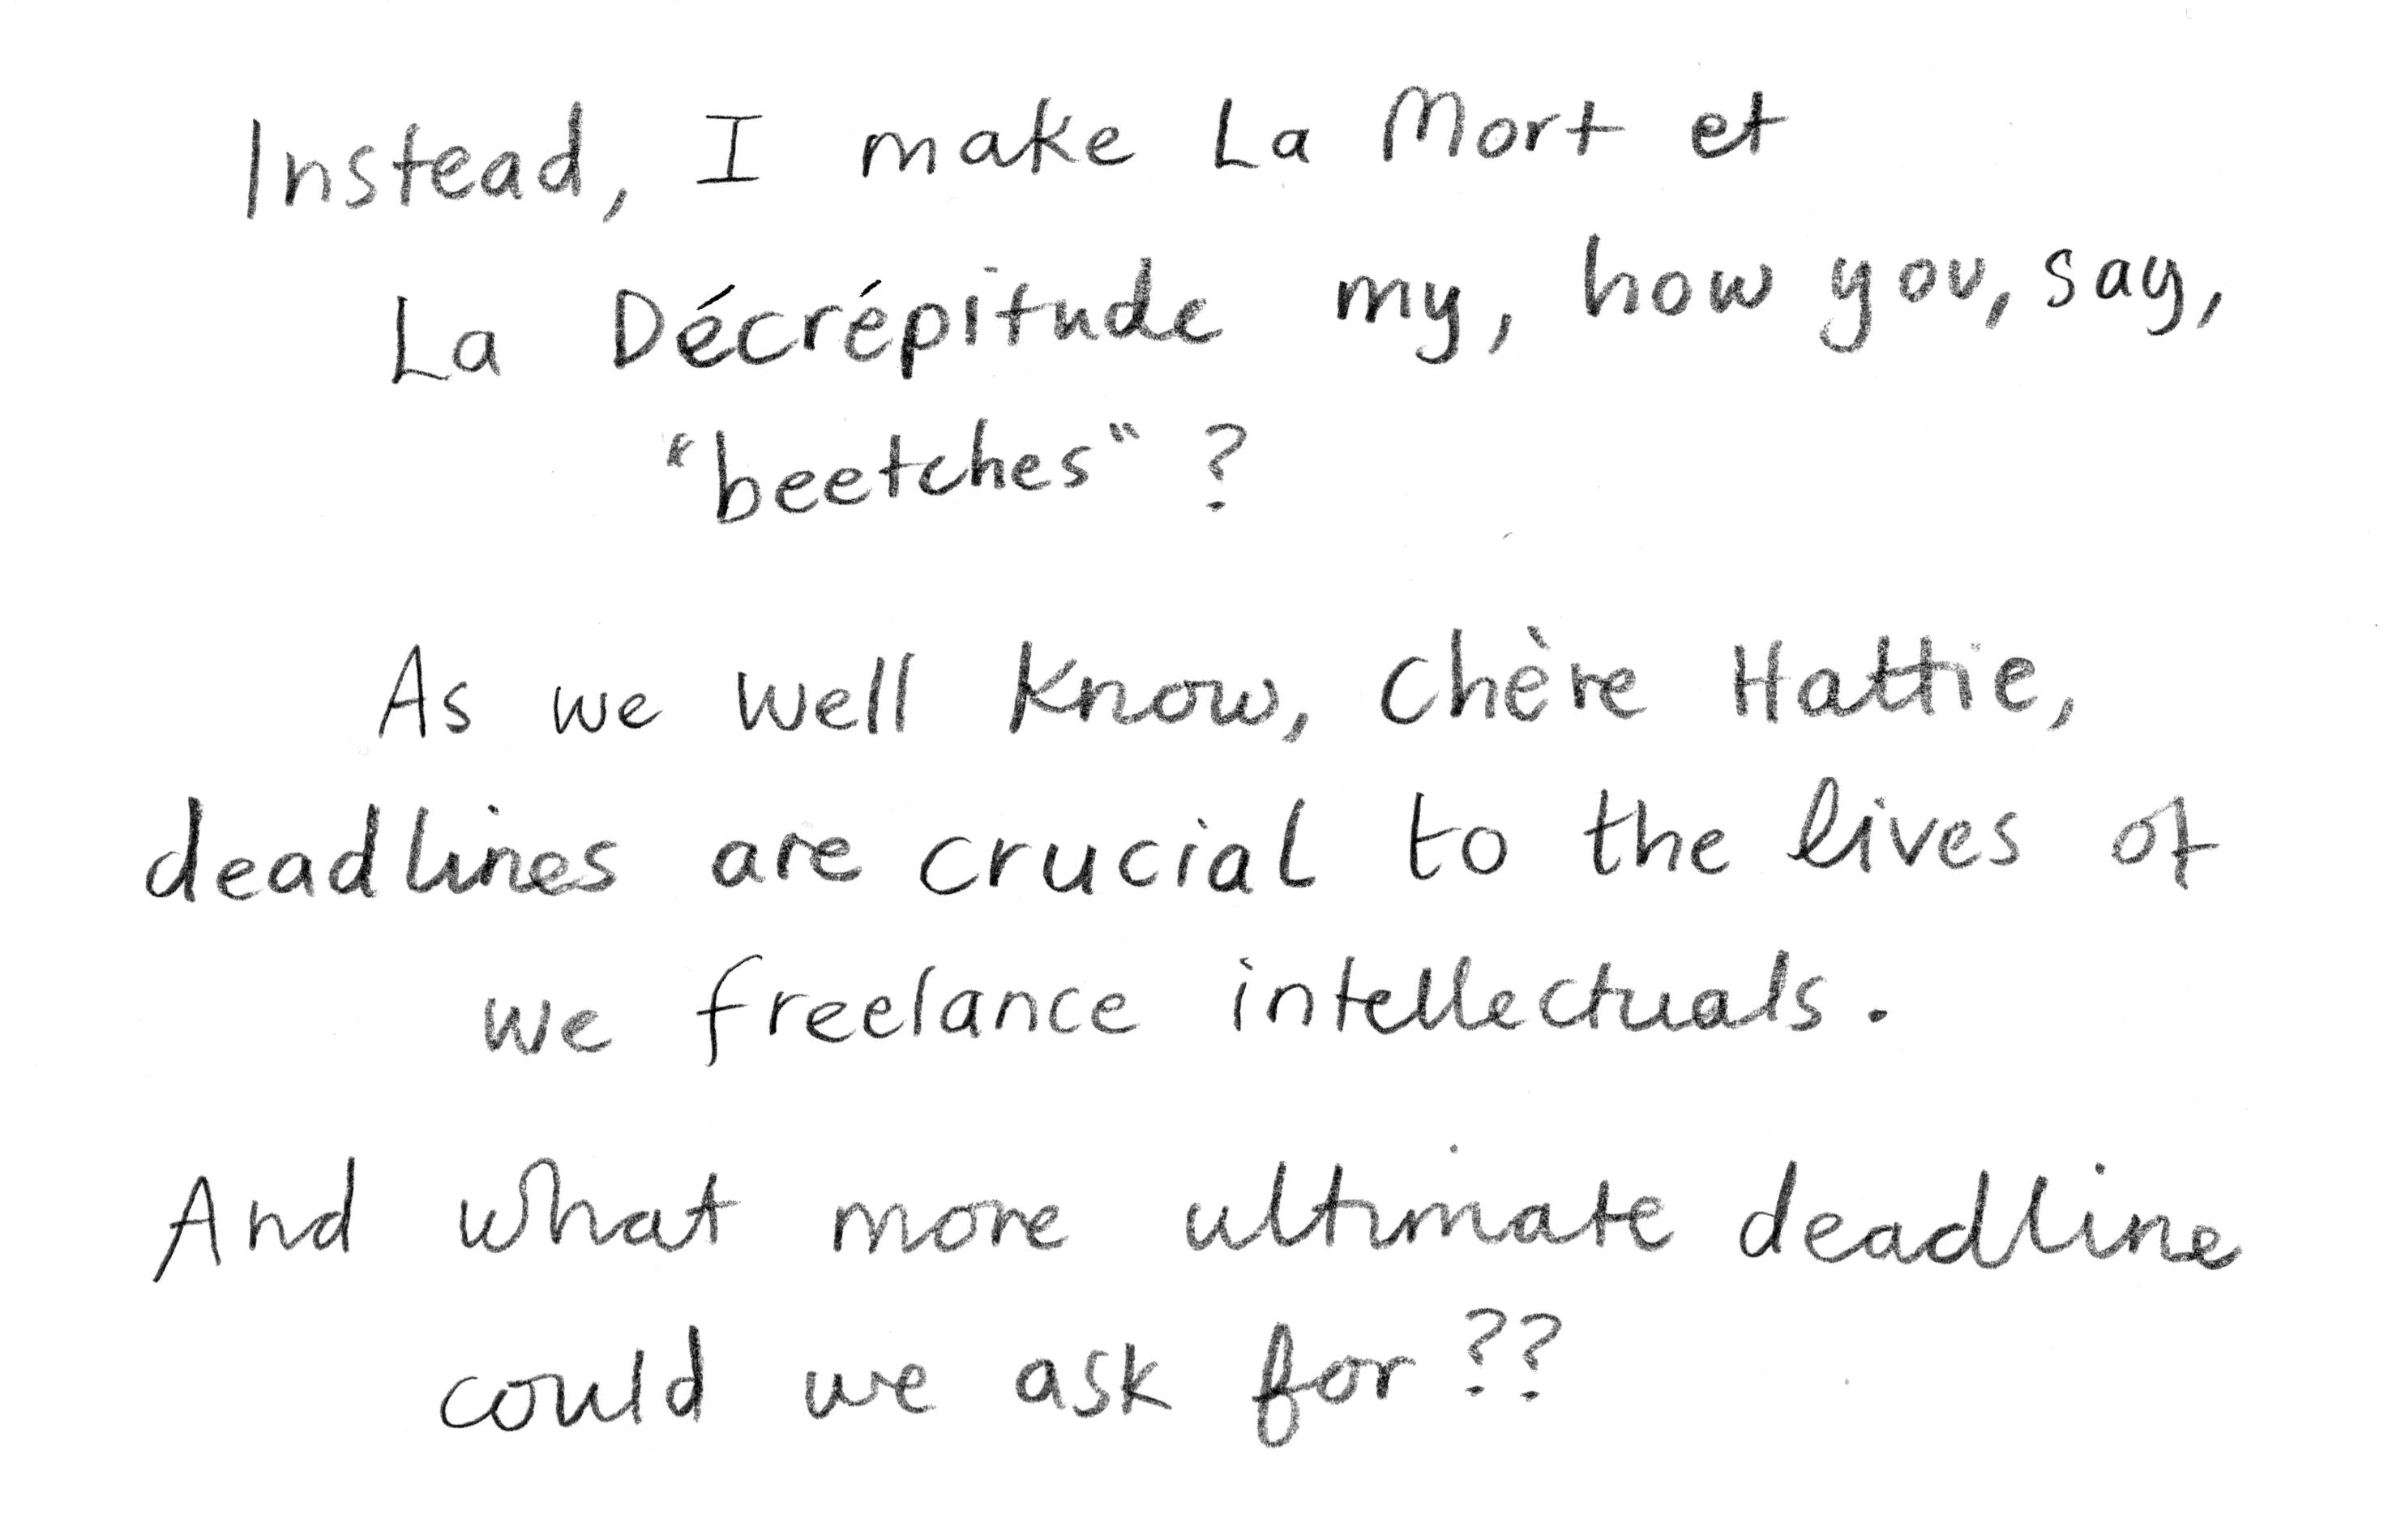 Instead, I make La Mort et
La Décrépitude my, how you, say,
"beetches" ?
As we well know, chère Hattie,
deadlines are crucial to the lives of
we freelance intellectuals.
And what more ultimate deadline
could we ask for ??